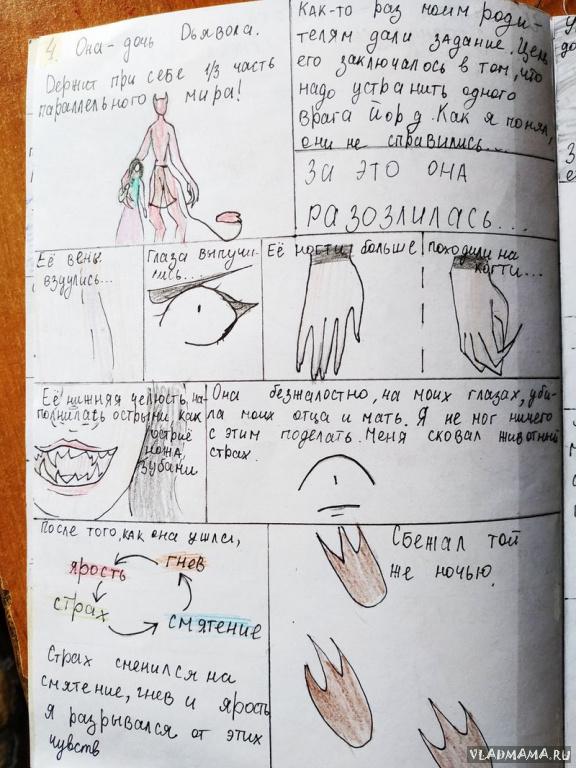 4. Она - дочь Дьявола.
Держит при себе 1/3 часть
параллельного мира!
Как-то раз моим роди-
телям дали задание. Цель
его заключалось в том, что
надо устранить одного
врага Йорд. Как я понял,
они не справились...
За это она
разозлилась...
Её вены
вздулись...
Глаза выпучи-
лись...
Её ногти больше
походили на
когти...
Её нижняя челюсть на-
полнилась острыми, как
остриё
ножа,
зубами
Она безжалостно, на моих глазах, уби-
ла моих отца и мать. Я не мог ничего
с этим поделать. Меня сковал животный
страх.
После того, как она ушла,
ярость
гнев
страх
смятение
Страх сменился на
смятение, гнев и ярость
Я разрывался от этих
чувств
Сбежал той
же ночью.
VLADMAMA.RU